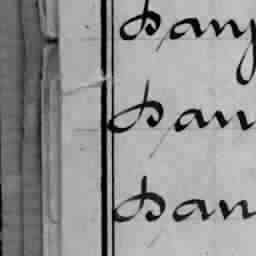 Dany
Dan
Dan